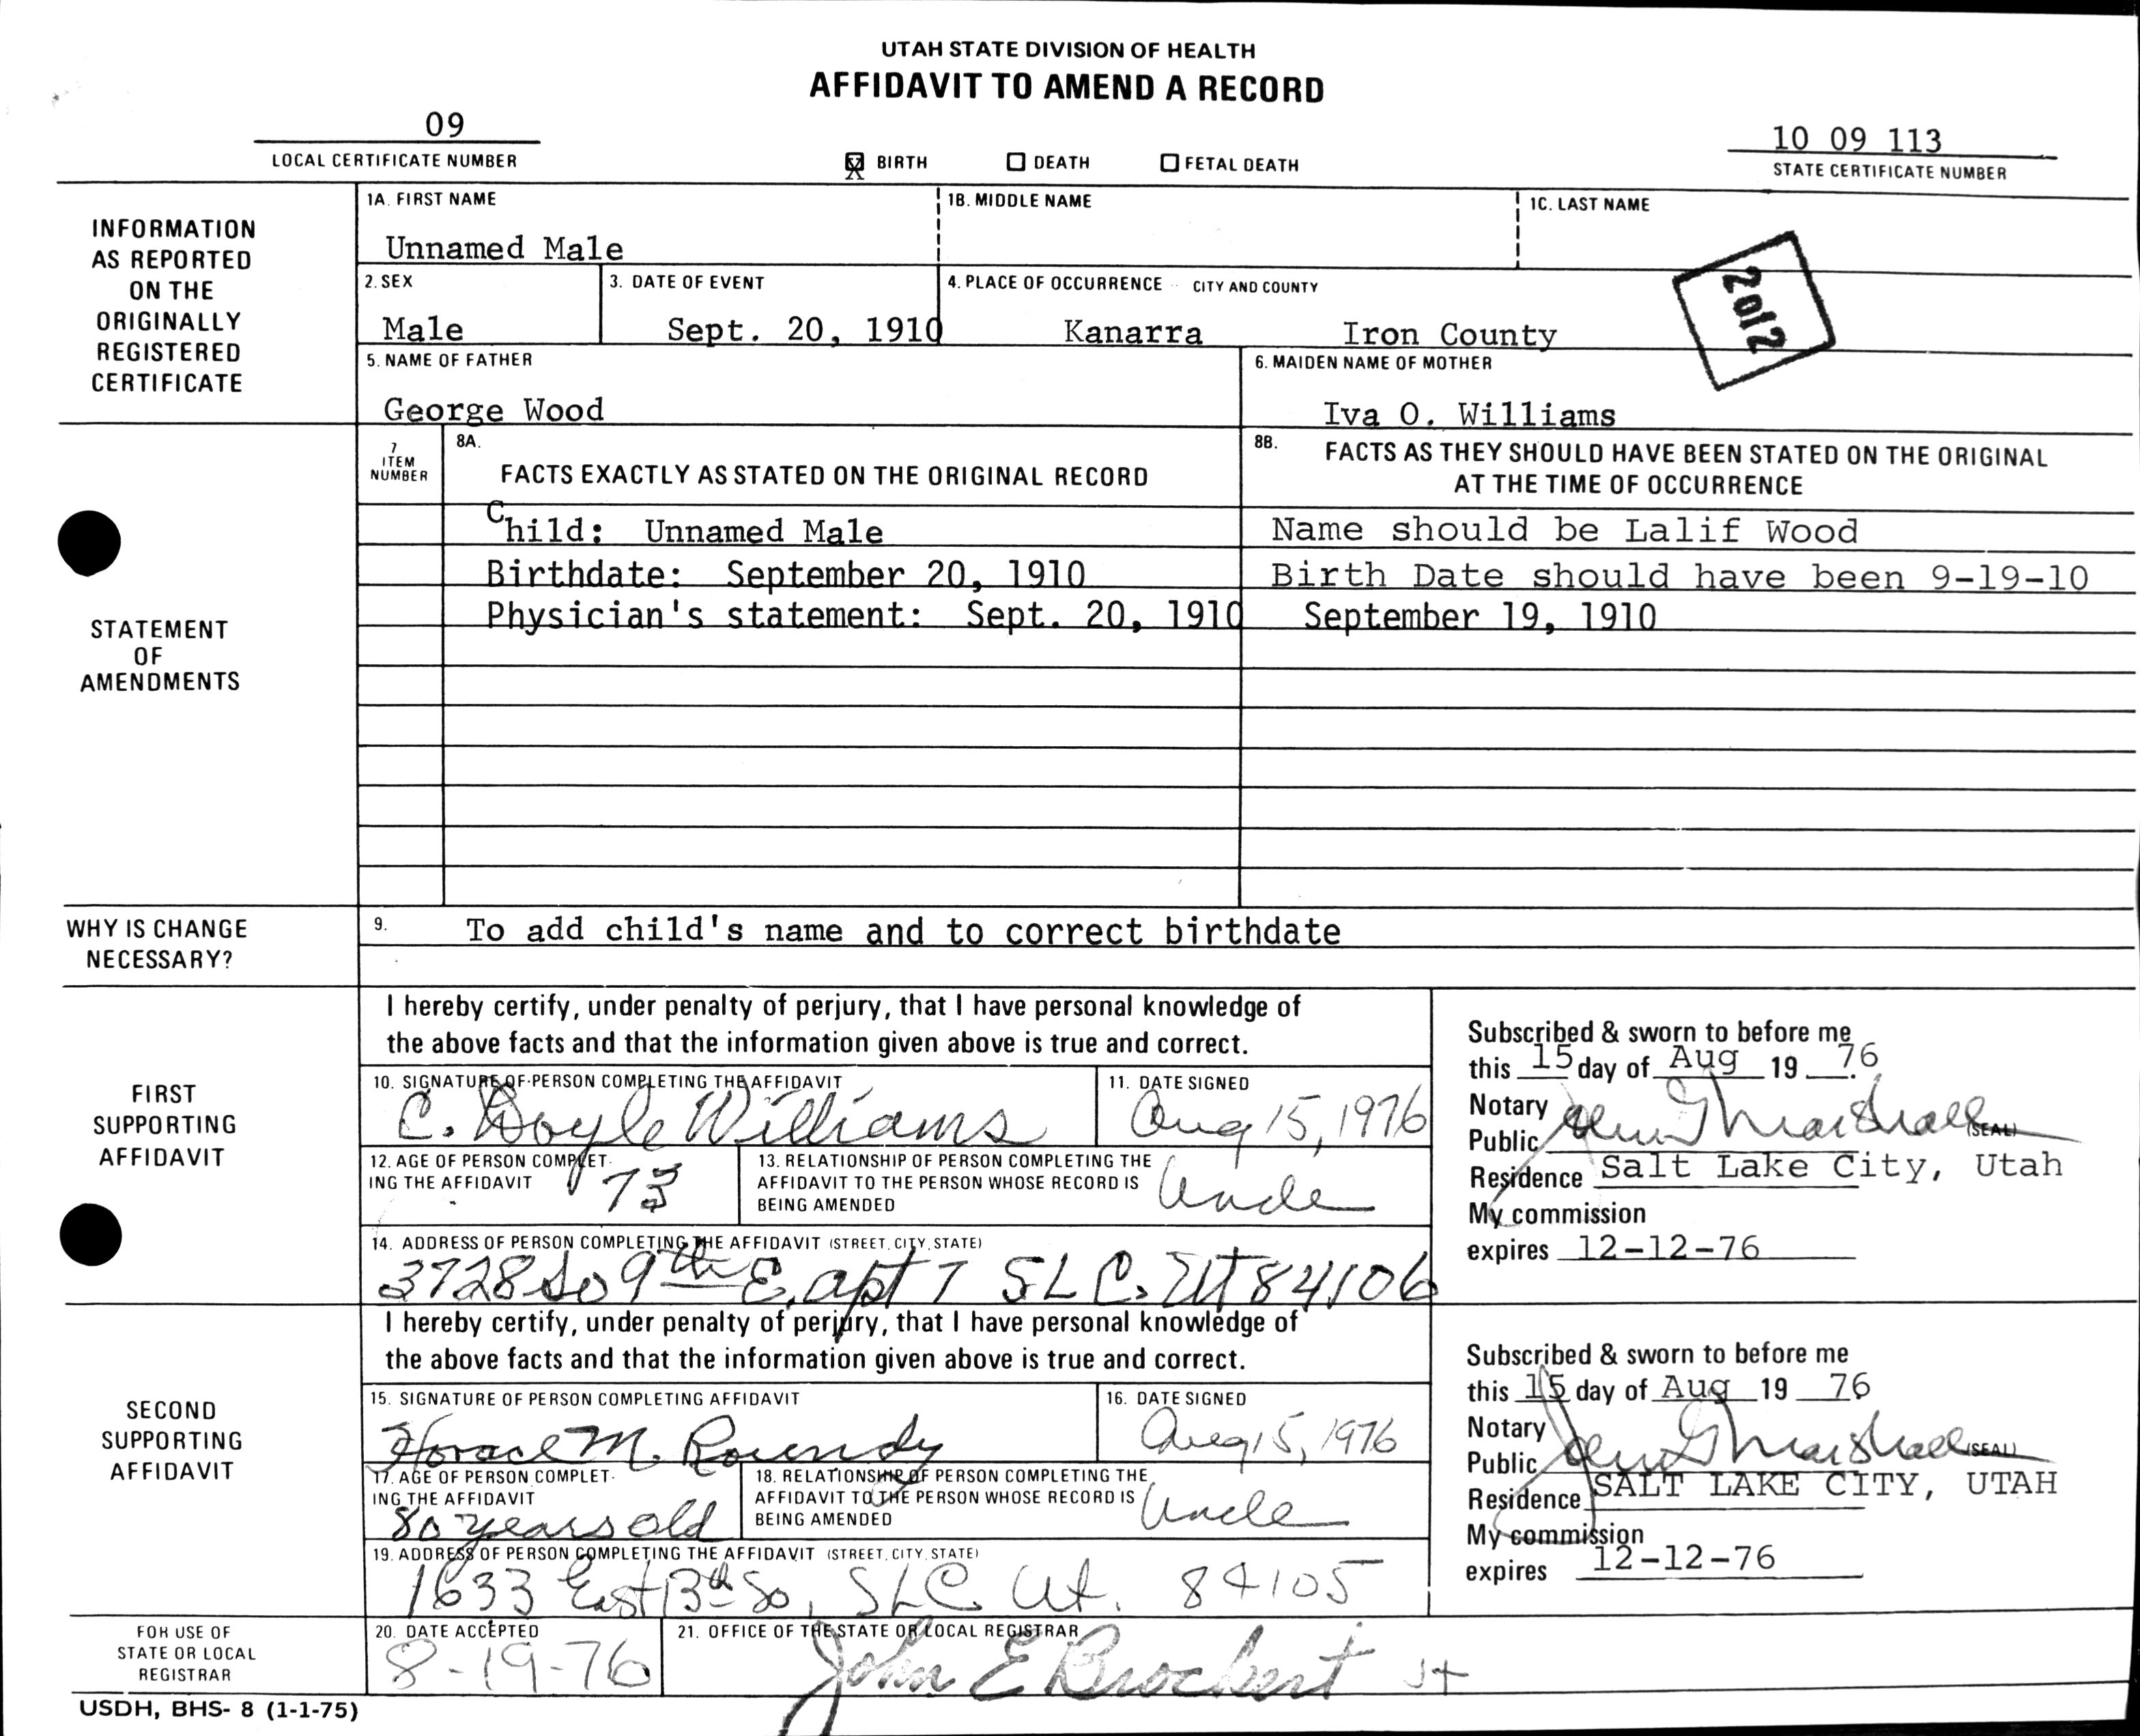 UTAH STATE DIVISION OF HEALTH
AFFIDAVIT TO AMEND A RECORD
09
LOCAL CERTIFICATE NUMBER
X BIRTH DEATH FETAL DEATH
10 09 113
STATE CERTIFICATE NUMBER
INFORMATION
AS REPORTED
ON THE
ORIGINALLY
REGISTERED
CERTIFICATE
1A. FIRST NAME 1B. MIDDLE NAME 1C. LAST NAME
Unnamed Male
2. SEX 3. DATE OF EVENT 4. PLACE OF OCCURRENCE CITY AND COUNTY
Male Sept. 20, 1910 Kanarra Iron County
2012
5. NAME OF FATHER 6. MAIDEN NAME OF MOTHER
George Wood Iva O. Williams
STATEMENT
OF
AMENDMENTS
7
ITEM
NUMBER
8A.
FACTS EXACTLY AS STATED ON THE ORIGINAL RECORD
8B. FACTS AS THEY SHOULD HAVE BEEN STATED ON THE ORIGINAL
AT THE TIME OF OCCURRENCE
Child: Unnamed Male Name should be Lalif Wood
Birthdate: September 20, 1910 Birth Date should have been 9-19-10
Physician's statement: Sept. 20, 1910 September 19, 1910
WHY IS CHANGE
NECESSARY?
9. To add child's name and to correct birthdate
FIRST
SUPPORTING
AFFIDAVIT
I hereby certify, under penalty of perjury, that I have personal knowledge of
the above facts and that the information given above is true and correct.
10. SIGNATURE OF PERSON COMPLETING THE AFFIDAVIT 11. DATE SIGNED
C. Doyle Williams Aug 15, 1976
12. AGE OF PERSON COMPLET-
ING THE AFFIDAVIT 73
13. RELATIONSHIP OF PERSON COMPLETING THE
AFFIDAVIT TO THE PERSON WHOSE RECORD IS
BEING AMENDED Uncle
14. ADDRESS OF PERSON COMPLETING THE AFFIDAVIT (STREET, CITY, STATE)
3728 So 9th E. apt 7 SLC. Ut 84106
Subscribed & sworn to before me
this 15 day of Aug 19 76
Notary
Public Marshall (SEAL)
Residence Salt Lake City, Utah
My commission
expires 12-12-76
SECOND
SUPPORTING
AFFIDAVIT
I hereby certify, under penalty of perjury, that I have personal knowledge of
the above facts and that the information given above is true and correct.
15. SIGNATURE OF PERSON COMPLETING AFFIDAVIT 16. DATE SIGNED
Horace M. Roundy Aug 15, 1976
17. AGE OF PERSON COMPLET-
ING THE AFFIDAVIT
80 years old
18. RELATIONSHIP OF PERSON COMPLETING THE
AFFIDAVIT TO THE PERSON WHOSE RECORD IS
BEING AMENDED Uncle
19. ADDRESS OF PERSON COMPLETING THE AFFIDAVIT (STREET, CITY, STATE)
1633 East 13th So, SLC Ut. 84105
Subscribed & sworn to before me
this 15 day of Aug 19 76
Notary
Public Marshall (SEAL)
Residence SALT LAKE CITY, UTAH
My commission
expires 12-12-76
FOR USE OF
STATE OR LOCAL
REGISTRAR
20. DATE ACCEPTED 21. OFFICE OF THE STATE OR LOCAL REGISTRAR
8-19-76 John E Brockert
USDH, BHS- 8 (1-1-75)